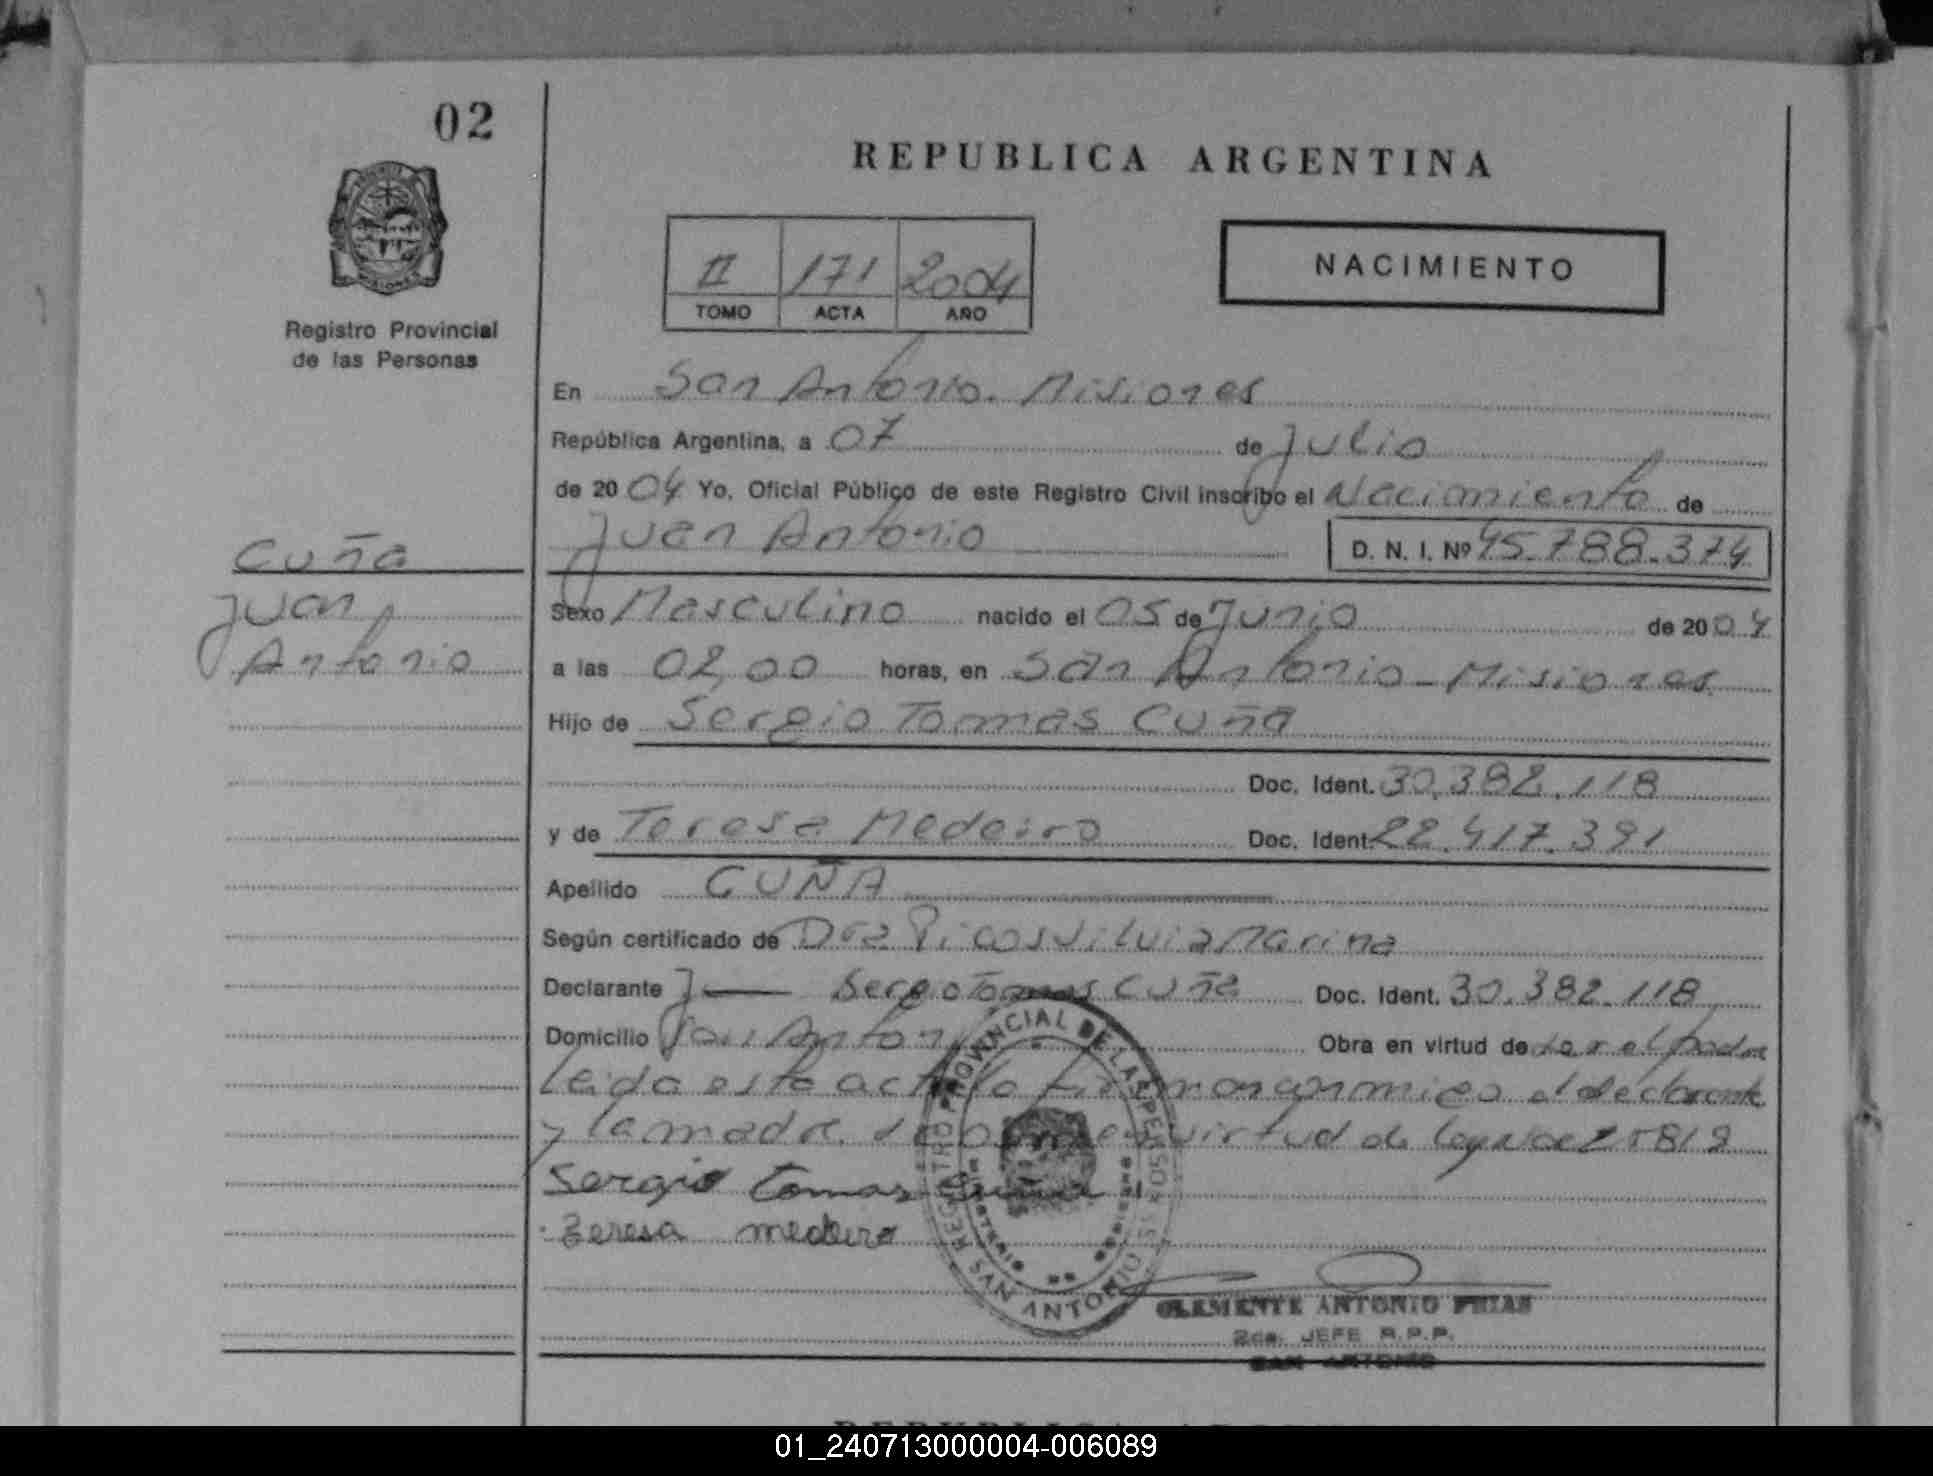 02
REPUBLICA ARGENTINA
NACIMIENTO
II 171 2004
TOMO ACTA AÑO
Registro Provincial
de las Personas
En San Antonio. Misiones
República Argentina, a 07 de Julio
de 2004 Yo, Oficial Público de este Registro Civil inscribo el Nacimiento de
Juan Antonio D. N. I. Nº 45.788.374
Cuña
Juan
Antonio
Sexo Masculino nacido el 05 de Junio de 2004
a las 02,00 horas, en San Antonio - Misiones
Hijo de Sergio Tomas Cuña
Doc. Ident. 30.382.118
y de Teresa Medeiro Doc. Ident. 22.417.391
Apellido CUÑA
Según certificado de Dra Picos Silvia Marina
Declarante Sergio Tomas Cuña Doc. Ident. 30.382.118
Domicilio San Anton Obra en virtud de ser el padre
Leida esta acta la firman conmigo el declarante
y la madre en virtud de ley
Sergio Tomas Cuña
Teresa medeiro
REGISTRO PROVINCIAL DE LAS PERSONAS
SAN ANTONIO
CLEMENTE ANTONIO FRIAS
2do. JEFE R.P.P.
SAN ANTONIO
REPUBLICA ARGENTINA
01_240713000004-006089